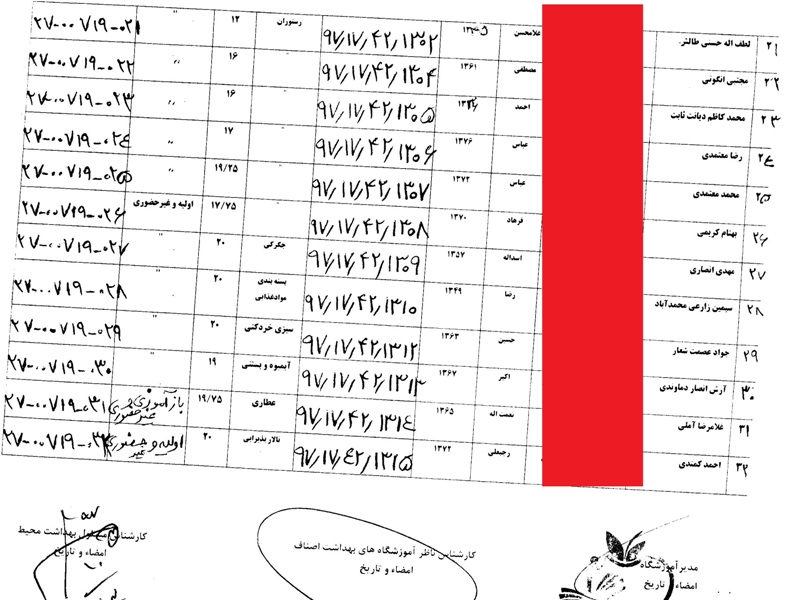 ۲۱ لطف اله حسنی طالش غلامحسن ۹۷,۱۷,۴۲,۱۳۰۲ رستوران ۱۲ " ۲۷-۰۰۷۱۹-۰۲۱
۲۲ مجتبی انگوتی مصطفی ۱۳۶۱ ۹۷,۱۷,۴۲,۱۳۰۴ " ۱۶ " ۲۷-۰۰۷۱۹-۰۲۲
۲۳ محمد کاظم دیانت ثابت احمد ۹۷,۱۷,۴۲,۱۳۰۵ " ۱۶ " ۲۷-۰۰۷۱۹-۰۲۳
۲۴ رضا معتمدی عباس ۱۳۷۶ ۹۷,۱۷,۴۲,۱۳۰۶ " ۱۷ " ۲۷-۰۰۷۱۹-۰۲۴
۲۵ محمد معتمدی عباس ۱۳۷۲ ۹۷,۱۷,۴۲,۱۳۰۷ " ۱۹/۲۵ " ۲۷-۰۰۷۱۹-۰۲۵
۲۶ بهنام کریمی فرهاد ۱۳۷۰ ۹۷,۱۷,۴۲,۱۳۰۸ " ۱۷/۷۵ اولیه و غیرحضوری ۲۷-۰۰۷۱۹-۰۲۶
۲۷ مهدی انصاری اسداله ۱۳۵۷ ۹۷,۱۷,۴۲,۱۳۰۹ جگرکی ۲۰ " ۲۷-۰۰۷۱۹-۰۲۷
۲۸ سیمین زارعی محمدآباد رضا ۱۳۴۹ ۹۷,۱۷,۴۲,۱۳۱۰ بسته بندی موادغذایی ۲۰ " ۲۷-۰۰۷۱۹-۰۲۸
۲۹ جواد عصمت شعار حسین ۱۳۶۳ ۹۷,۱۷,۴۲,۱۳۱۲ سبزی خردکنی ۲۰ " ۲۷-۰۰۷۱۹-۰۲۹
۳۰ آرش انصار دماوندی اکبر ۱۳۶۷ ۹۷,۱۷,۴۲,۱۳۱۳ آبمیوه و بستنی ۱۹ " ۲۷-۰۰۷۱۹-۰۳۰
۳۱ غلامرضا آملی نعمت اله ۱۳۶۵ ۹۷,۱۷,۴۲,۱۳۱۴ عطاری ۱۹/۷۵ بازآموزی و غیرحضوری ۲۷-۰۰۷۱۹-۰۳۱
۳۲ احمد کمندی رجبعلی ۱۳۷۲ ۹۷,۱۷,۴۲,۱۳۱۵ تالارپذیرایی ۲۰ اولیه و غیرحضوری ۲۷-۰۰۷۱۹-۰۳۲
مدیرآموزشگاه کارشناس ناظر آموزشگاه های بهداشت اصناف کارشناس مسئول بهداشت محیط
امضاء و تاریخ امضاء و تاریخ امضاء و تاریخ